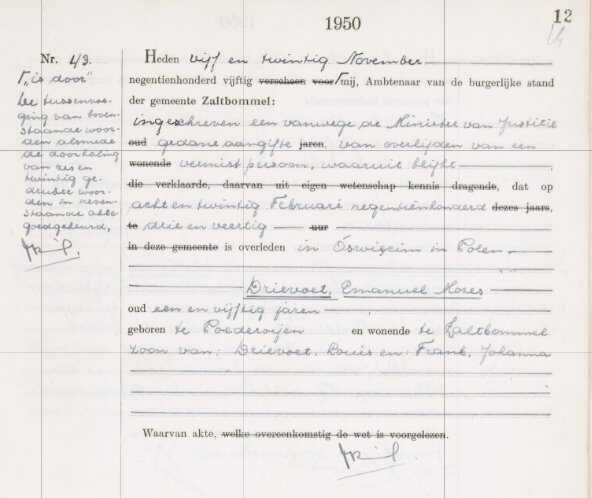 1950
12
Nr. 43.
Heden vijf en twintig November
negentienhonderd vijftig verscheen voor mij, Ambtenaar van de burgerlijke stand
der gemeente Zaltbommel:
ingeschreven een vanwege de Minister van Justitie
oud gedane aangifte jaren, van overlijden van een
wonende vermist persoon, waaruit blijkt
die verklaarde, daarvan uit eigen wetenschap kennis dragende, dat op
acht en twintig Februari negentienhonderd dezes jaars,
te drie en veertig uur
in deze gemeente is overleden in Oswiecim in Polen
Drievoet, Emanuel Mozes
oud een en vijftig jaren
geboren te Poederoijen en wonende te Zaltbommel
zoon van: Drievoet, Louis en: Frank, Johanna
Waarvan akte, welke overeenkomstig de wet is voorgelezen.
"is door"
De tussenvoe-
ging van boven-
staande woor-
den alsmede
de doorhaling
van zes en
twintig ge-
drukte woor-
den in neven-
staande akte
goedgekeurd,